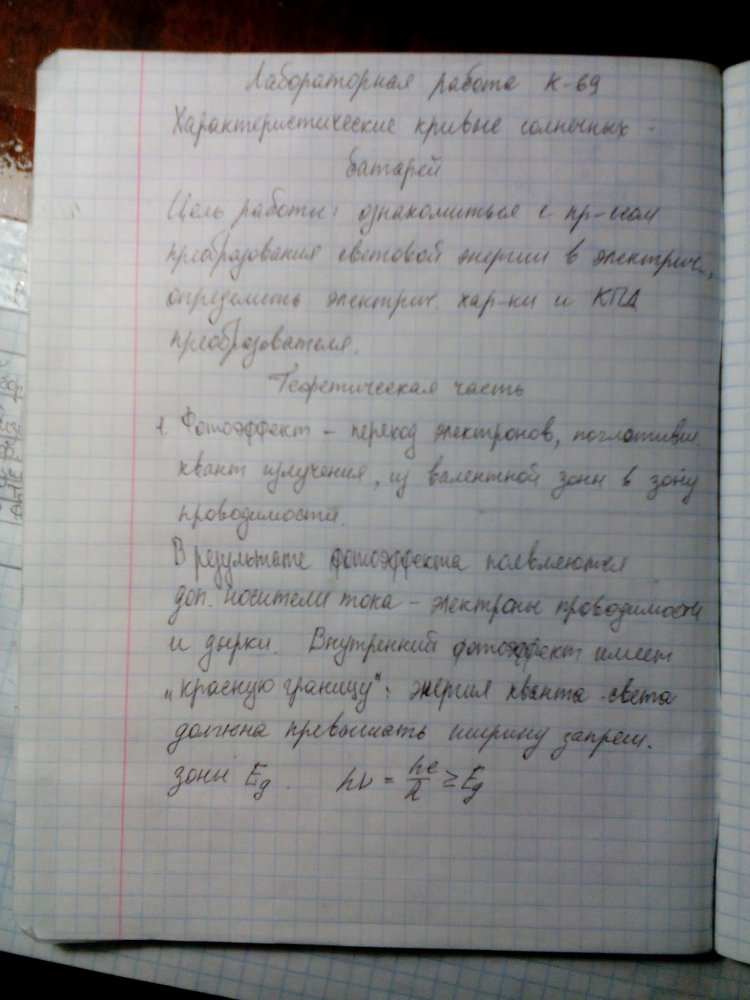 Лабораторная работа К-69
Характеристические кривые солнечных
батарей
Цель работы: ознакомиться с пр-сом
преобразования световой энергии в электрич.,
определить электрич. хар-ки и КПД
преобразователя.
Теоретическая часть
1. Фотоэффект – переход электронов, поглотивш.
квант излучения, из валентной зоны в зону
проводимости.
В результате фотоэффекта появляются
доп. носители тока – электроны проводимости
и дырки. Внутренний фотоэффект имеет
„красную границу“: энергия кванта света
должна превышать ширину запрещ.
зоны Eg. hν = hc/λ ≥ Eg